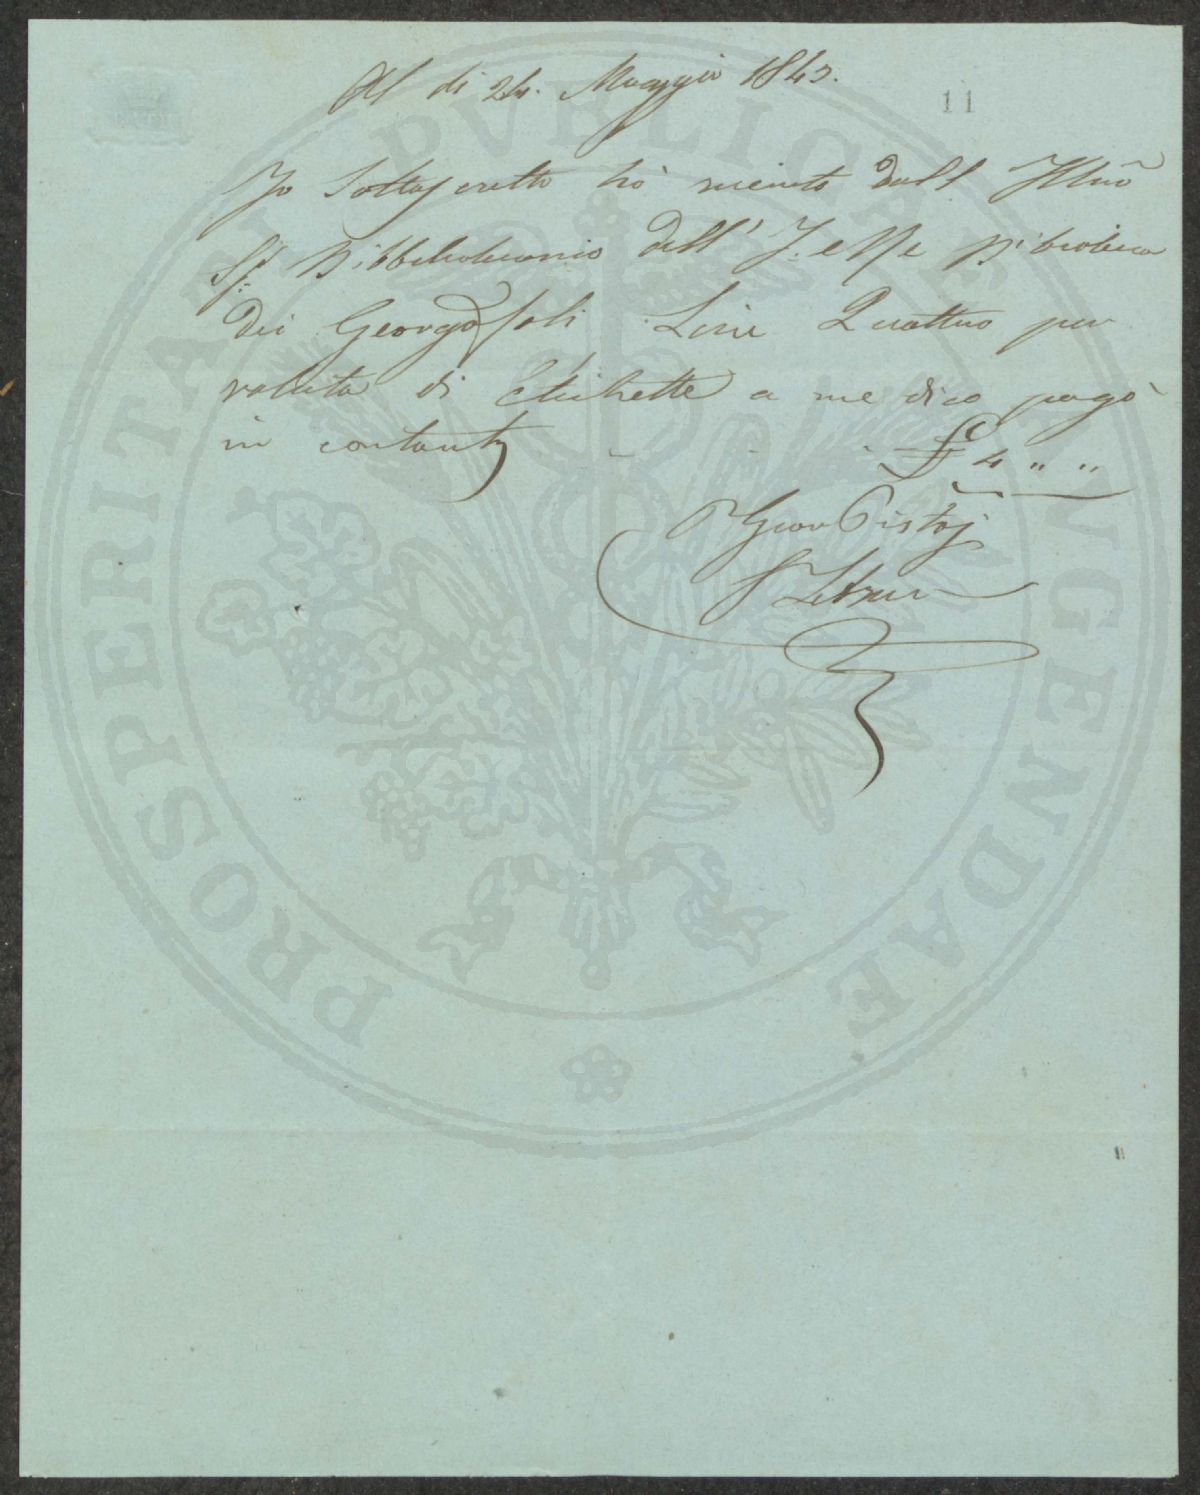 Al di 24. Maggio 1843.
11
Io Sottoscritto hò ricevuto dall Illmõ
Sig.r Bibbliotecario dell' I. e Re Bibrioteca
dei Georgofoli Lire Quattro per
valuta di Etichette a me dico pagò
in contanti £ 4 " "
Giov Pistoj
PROSPERITATI PVBLICAE AVGENDAE